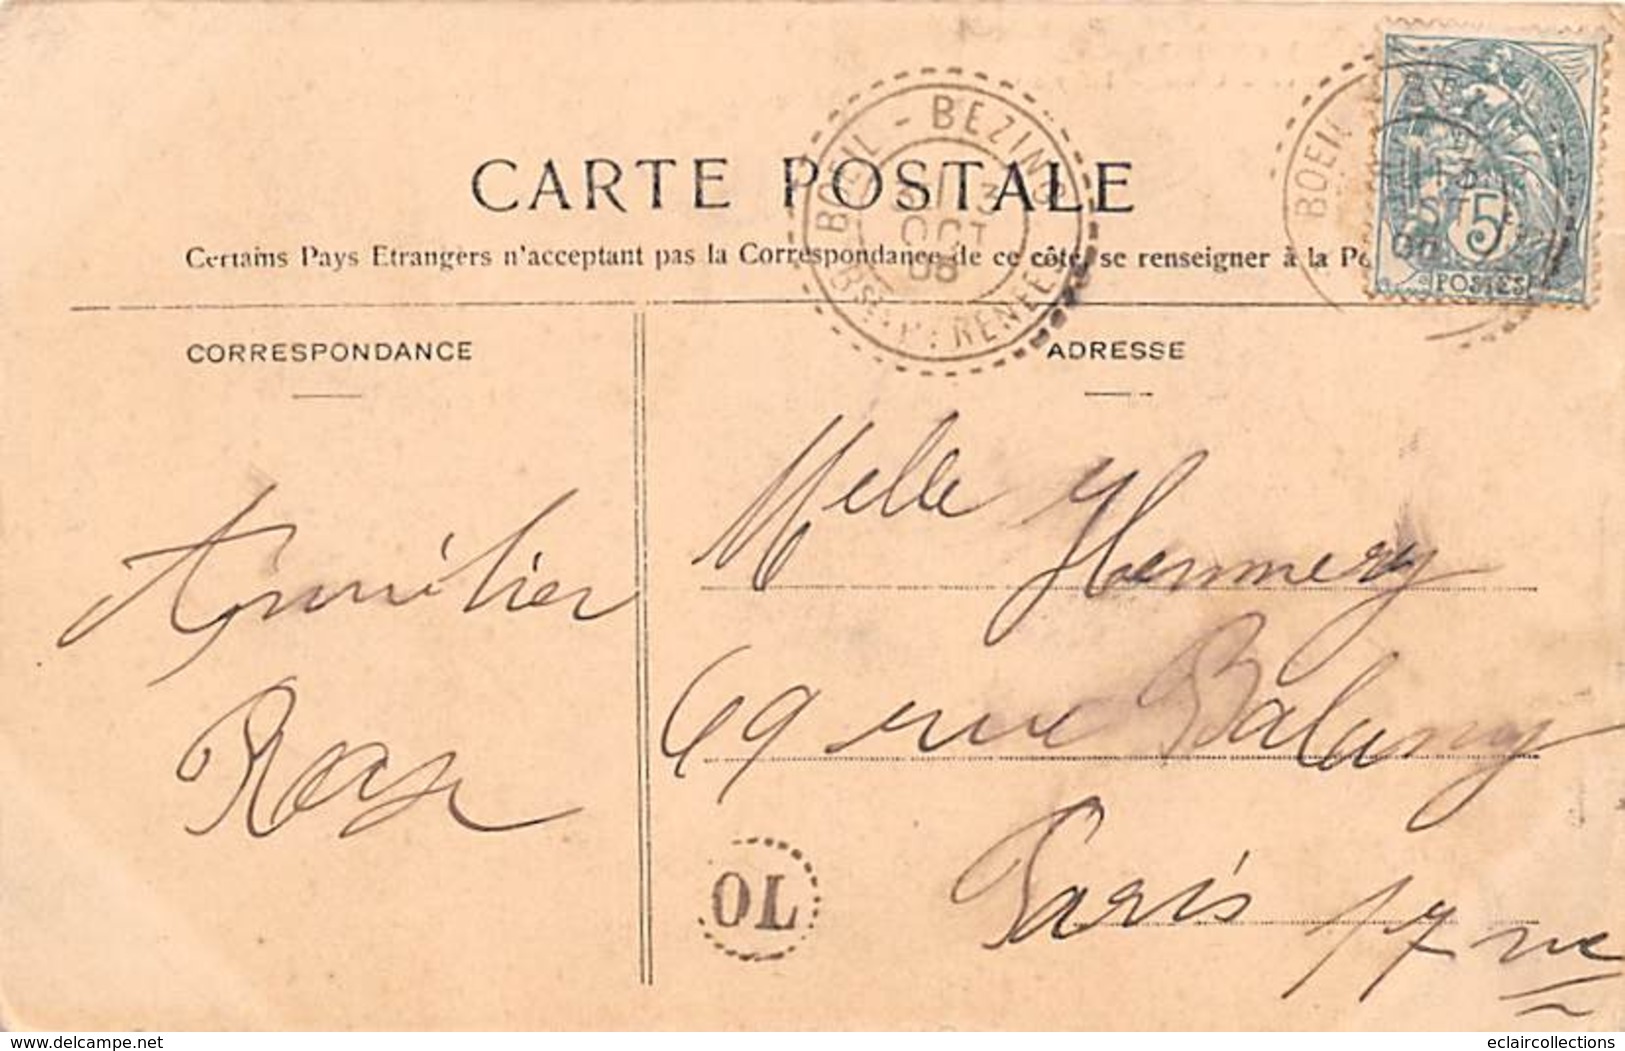 CARTE POSTALE
Certains Pays Etrangers n'acceptent pas la Correspondance de ce côté, se renseigner à la Po
BOEIL - BEZING
3
OCT
BSES PYRENEES
BOEIL
5
POSTES
CORRESPONDANCE
ADRESSE
Melle Hennery
69 rue Balagny
Paris 17 me
Amitiés
Rose
OL
www.delcampe.net
eclaircollections